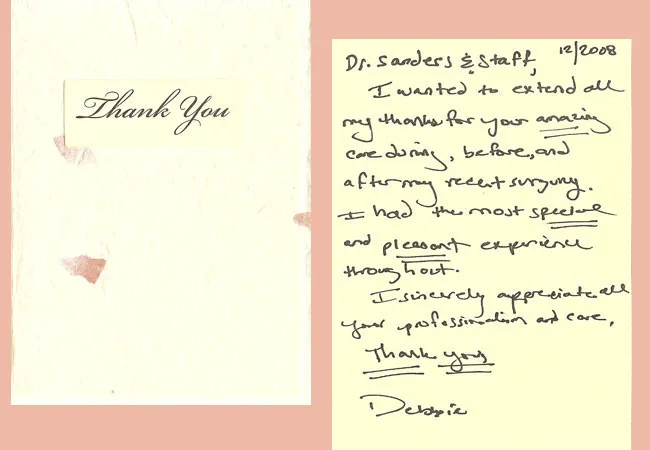 Thank You
12/2008
Dr. Sanders & Staff,
I wanted to extend all
my thanks for your amazing
care during, before, and
after my recent surgury.
I had the most special
and pleasant experience
throughout.
I sincerely appreciate all
your professionalism and care.
Thank you,
Debbie